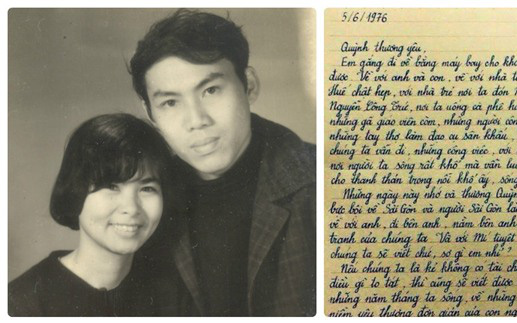 5/6/1976
Quỳnh thương yêu,
Em gắng đi về bằng máy bay cho
được. Về với anh và con, về với nhà
Huế chật hẹp, với nhà trẻ nơi ta đón
Nguyễn Công Trứ, nơi ta uống cà phê
những gã giáo viên cóm, những người
những tay thợ làm dao cụ sân khấu,
chúng ta vẫn đi, những công việc, với
nơi người ta sống rất khổ mà vẫn
cho thanh thản trong nỗi khổ ấy, sống
Những ngày này nhớ và thương
bực bội về Sài Gòn và người Sài Gòn
về với anh, đi bên anh, nằm bên anh
tranh của chúng ta "Và với Mí tuyết
chúng ta sẽ viết chứ, sợ gì em nhỉ?
Nếu chúng ta là kẻ không có tài
điều gì to tát, thì cũng sẽ viết được
những năm tháng ta sống, về những
niềm yêu thương đơn giản của con